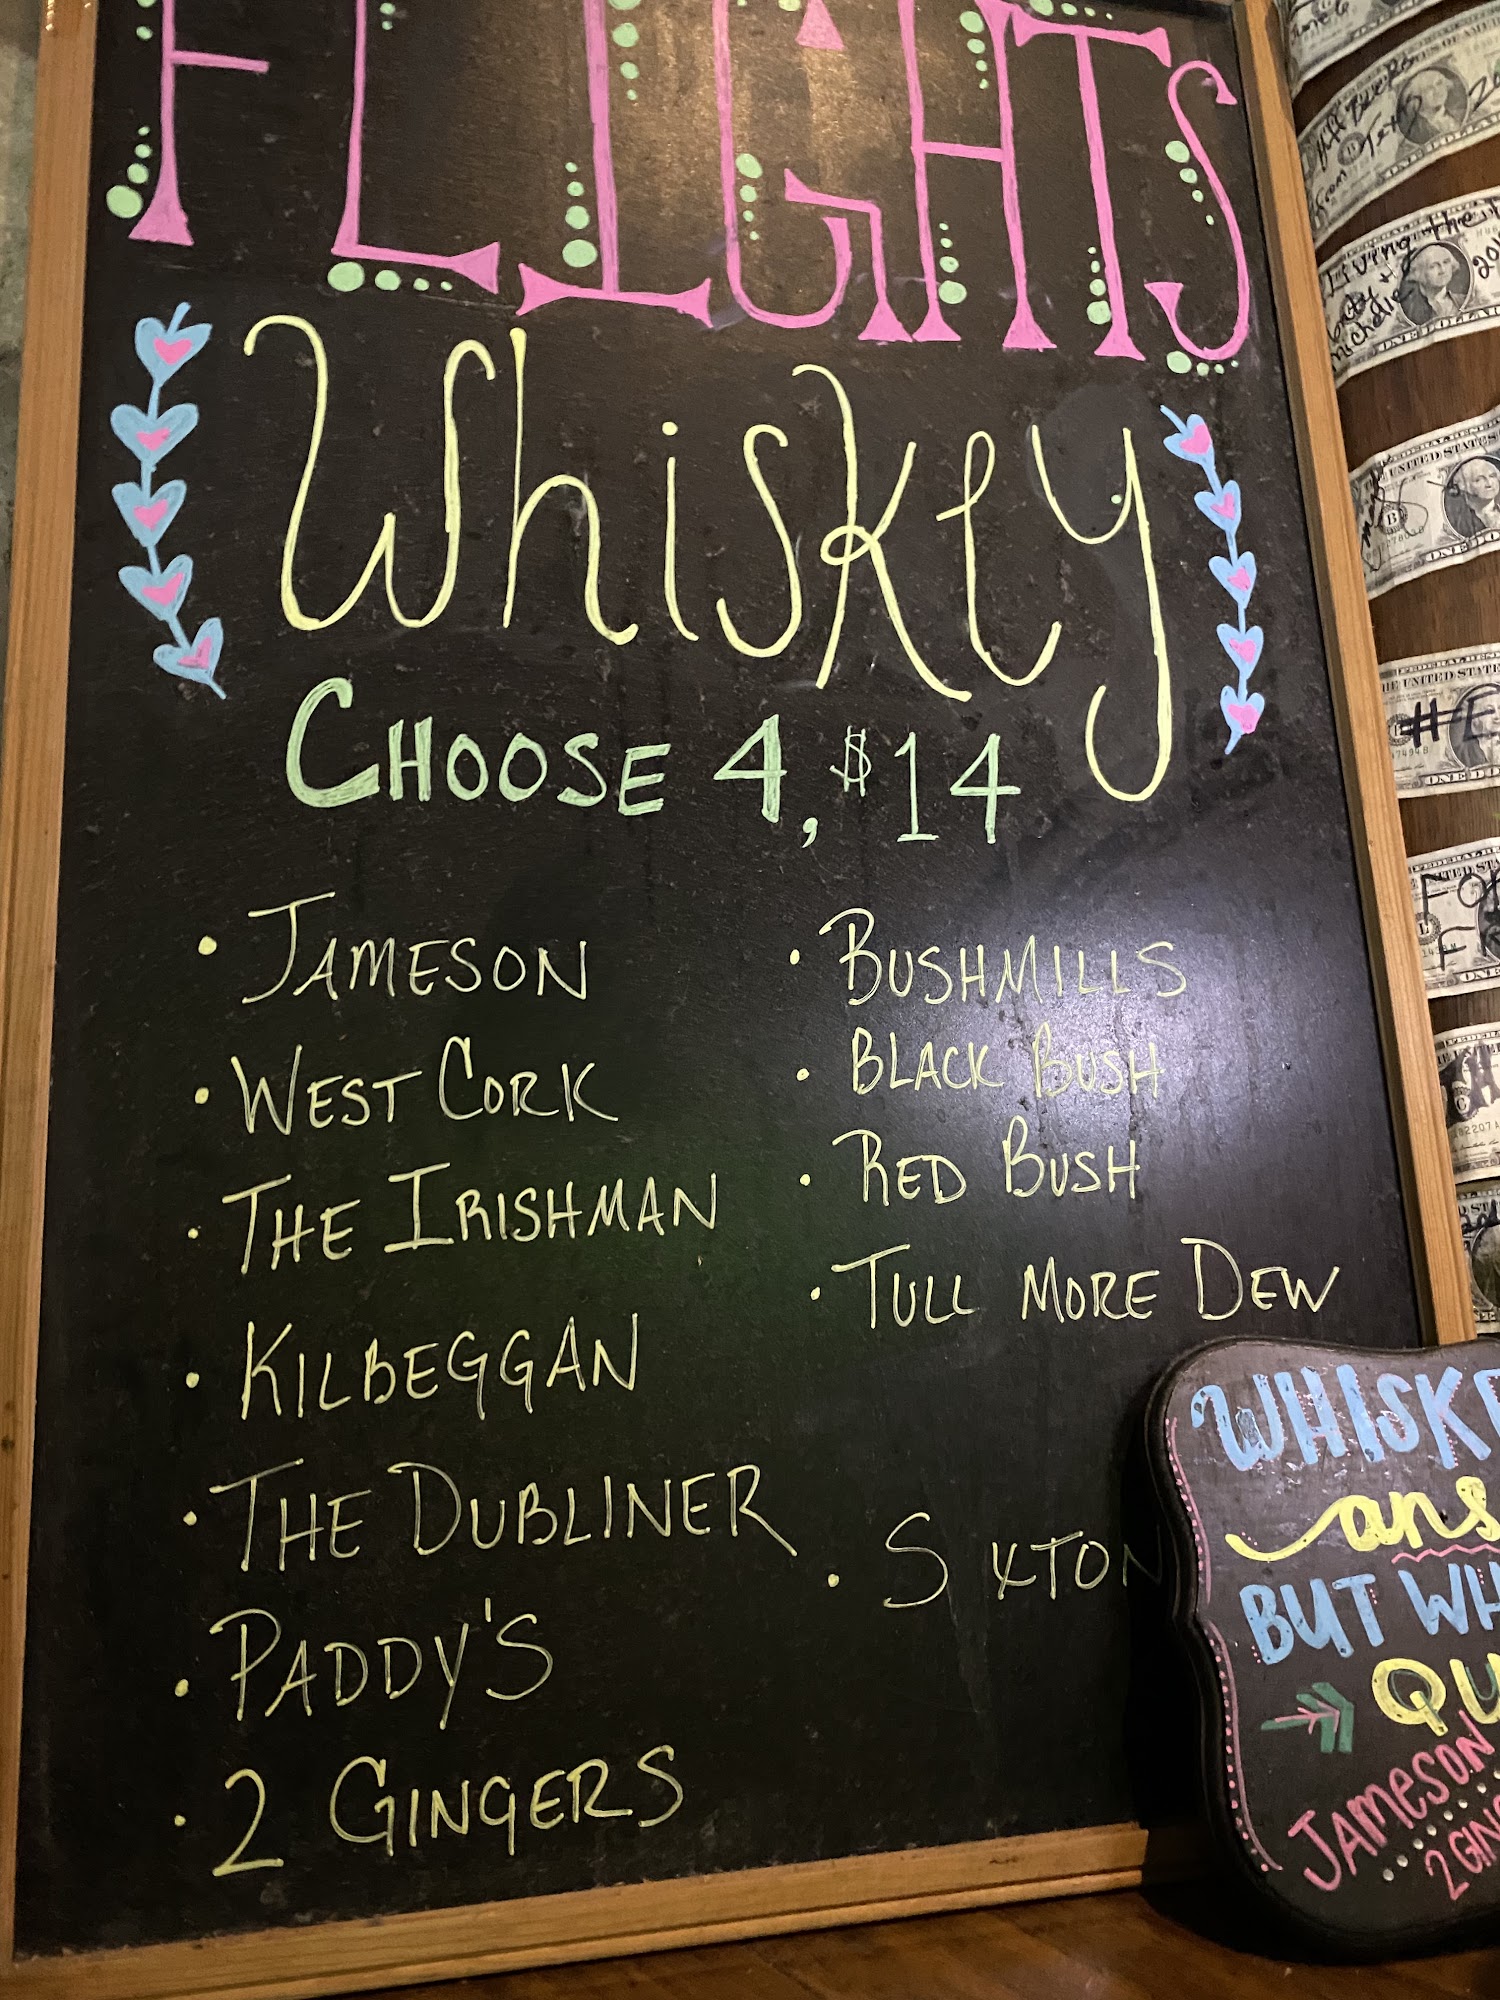 FLIGHTS
Whiskey
CHOOSE 4, $14
• JAMESON
• WEST CORK
• THE IRISHMAN
• KILBEGGAN
• THE DUBLINER
• PADDY'S
• 2 GINGERS
• BUSHMILLS
• BLACK BUSH
• RED BUSH
• TULL MORE DEW
• SEXTON
WHISKE
ans
BUT WH
QU
JAMESON
2 GING
FEDERAL RESE
THE UNITED STATES
ONE DO